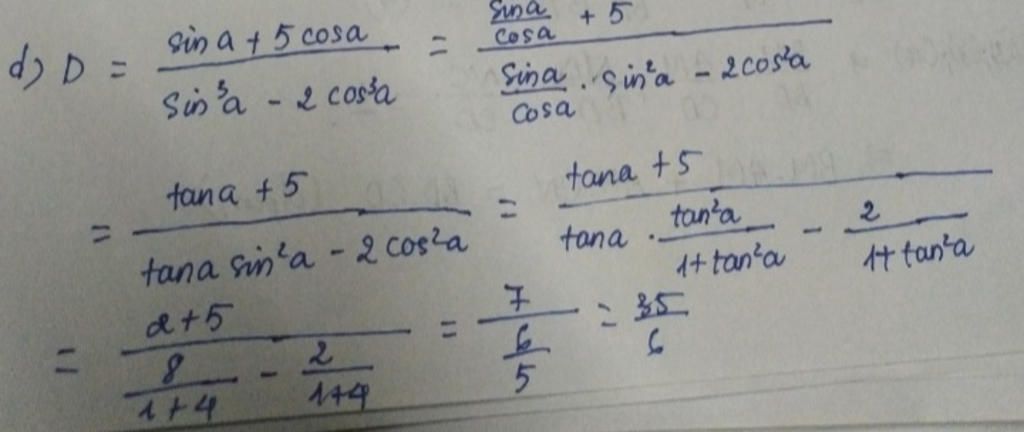 d) D = \frac{sin a + 5 cos a}{sin^3 a - 2 cos^3 a} = \frac{\frac{sin a}{cos a} + 5}{\frac{sin a}{cos a} \cdot sin^2 a - 2 cos^2 a}
= \frac{tan a + 5}{tan a sin^2 a - 2 cos^2 a} = \frac{tan a + 5}{tan a \cdot \frac{tan^2 a}{1 + tan^2 a} - \frac{2}{1 + tan^2 a}}
= \frac{2 + 5}{\frac{8}{1 + 4} - \frac{2}{1 + 4}} = \frac{7}{\frac{6}{5}} = \frac{35}{6}